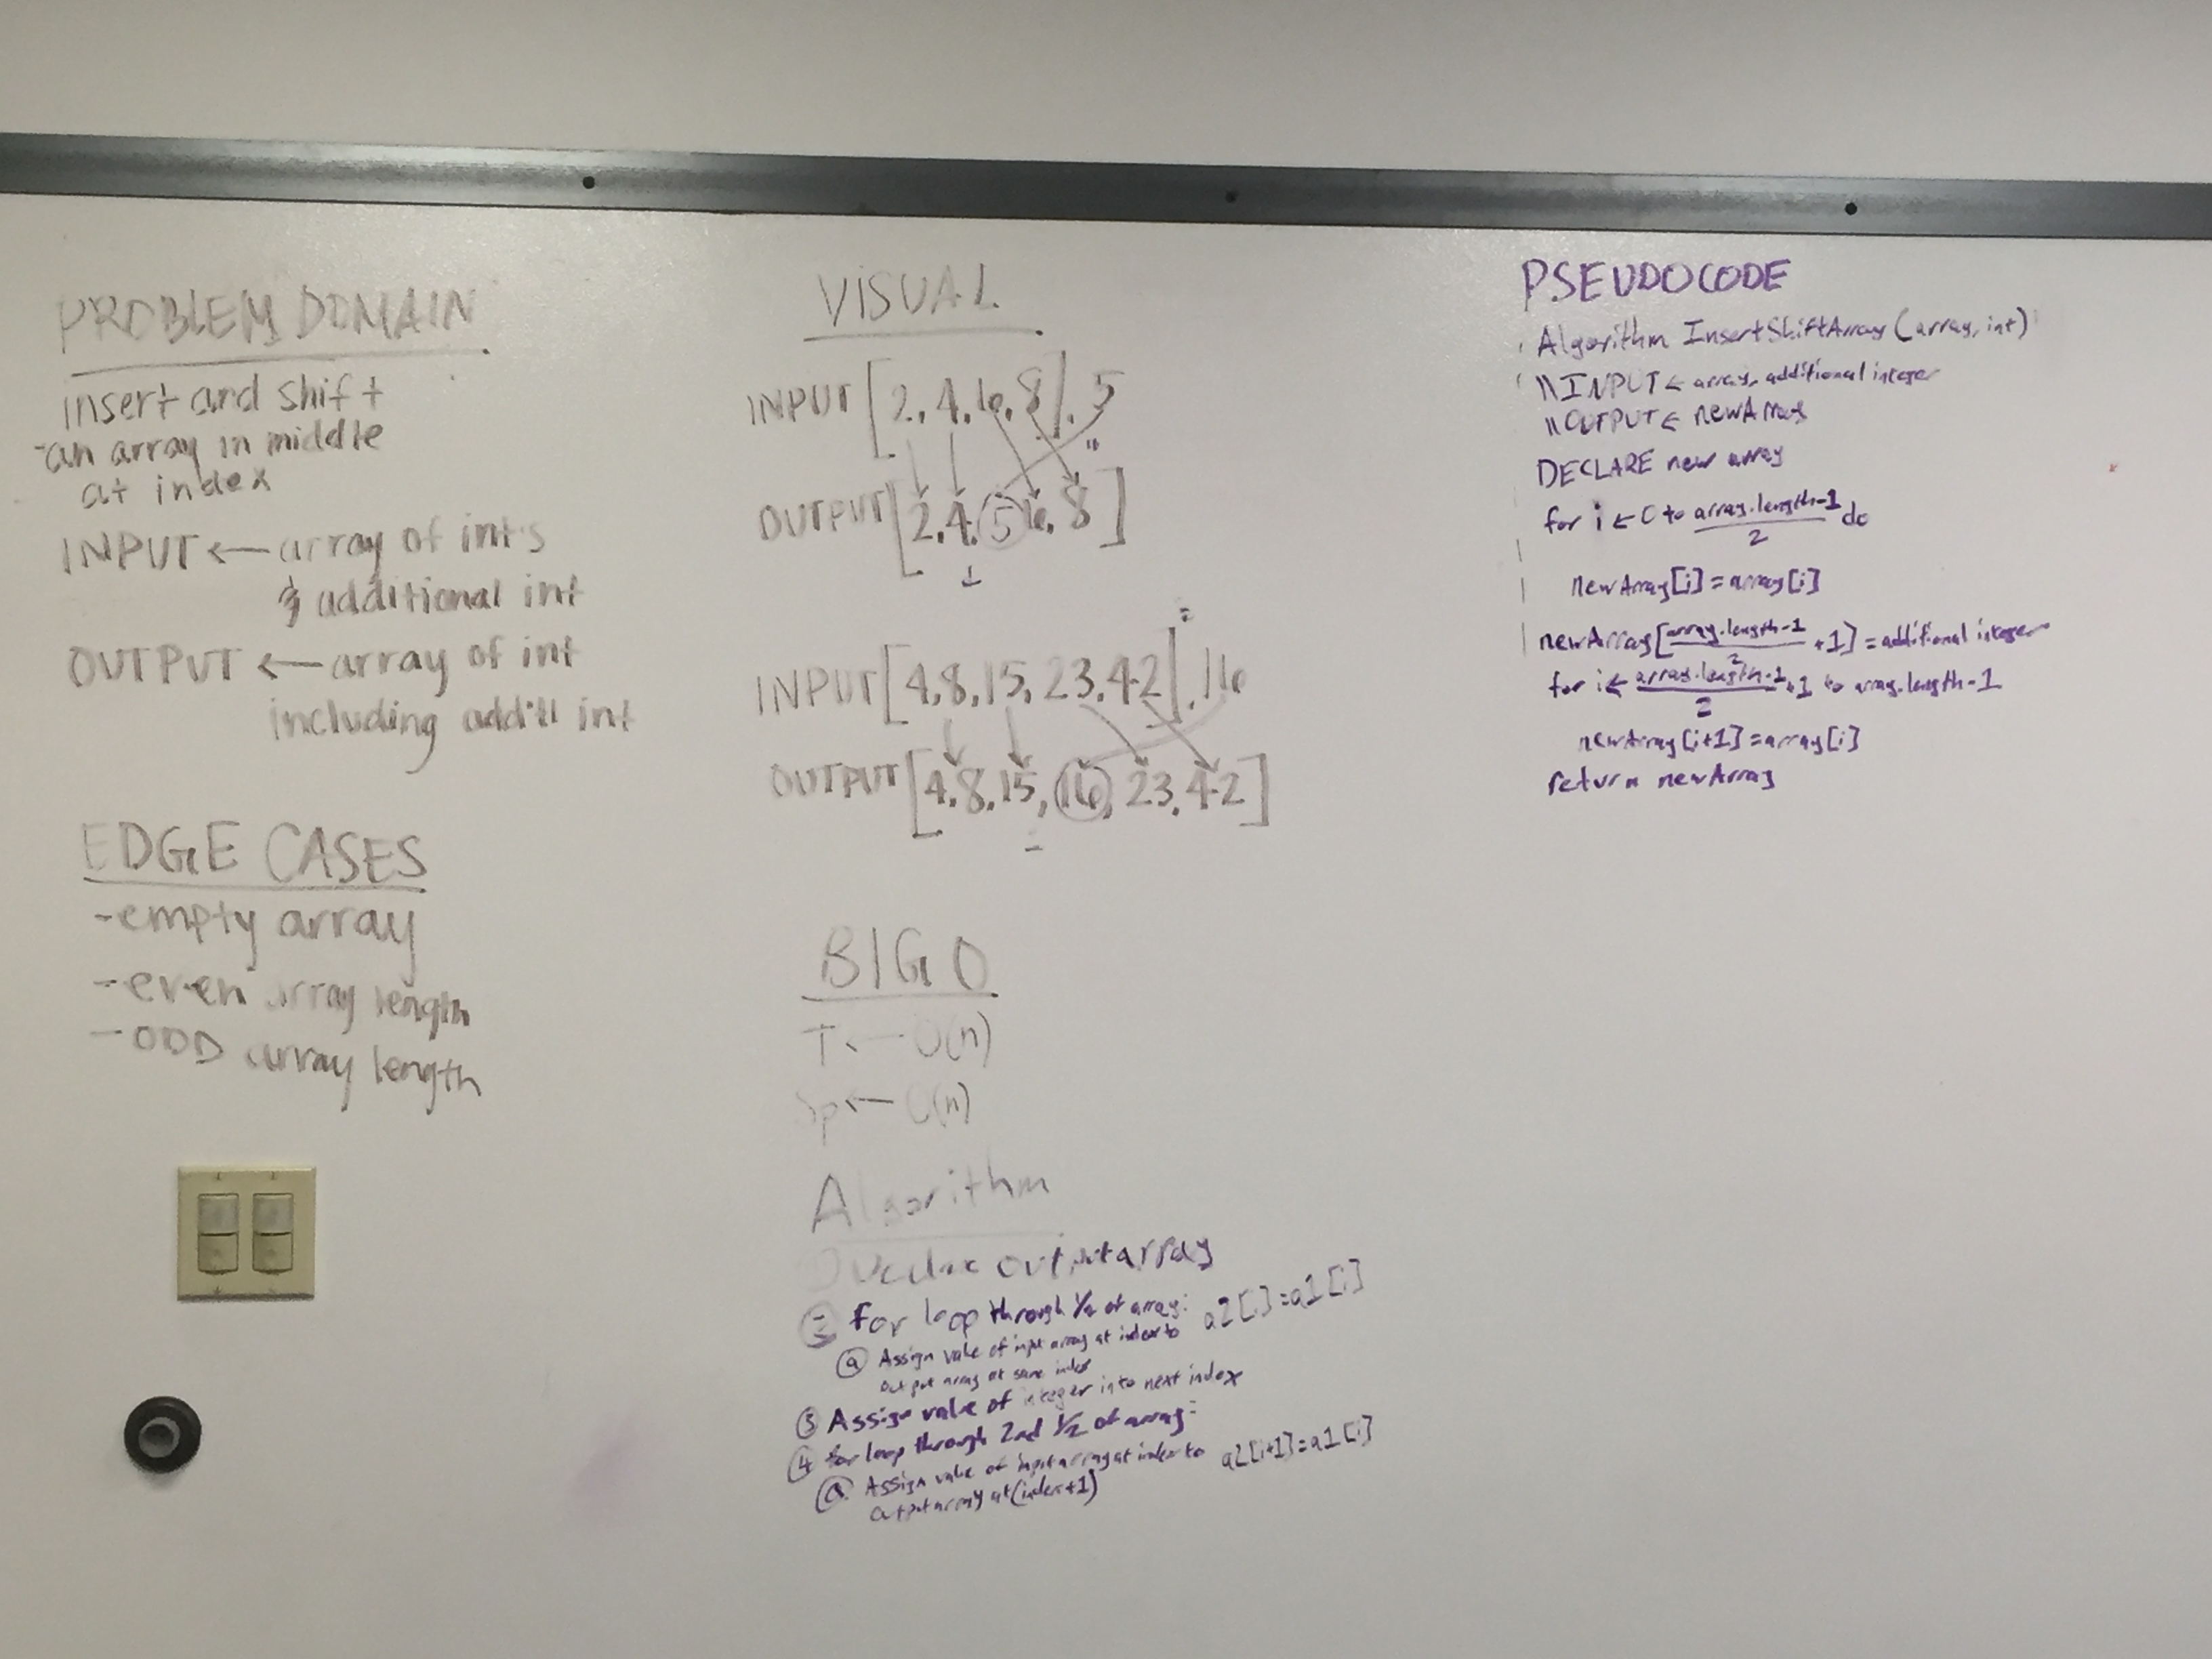 PROBLEM DOMAIN
insert and shift
-an array in middle
at index
INPUT ← array of int's
& additional int
OUTPUT ← array of int
including add'tl int
EDGE CASES
-empty array
-even array length
-ODD array length
VISUAL
INPUT [2,4,6,8], 5
OUTPUT [2,4,5,6,8]
INPUT [4,8,15,23,42], 16
OUTPUT [4,8,15,16,23,42]
BIG O
T ← O(n)
Sp ← O(n)
Algorithm
output array
② For loop through 1/2 of array: a2[i]=a1[i]
ⓐ Assign value of input array at index to
output array at same index
③ Assign value of integer into next index
④ for loop through 2nd 1/2 of array:
ⓐ Assign value of input array at index to a2[i+1]=a1[i]
output array at (index+1)
PSEUDOCODE
Algorithm InsertShiftArray (array, int)
\\INPUT ← array, additional integer
\\OUTPUT ← newArray
DECLARE new array
for i ← 0 to array.length-1 do
2
newArray[i] = array[i]
newArray[array.length-1 +1] = additional integer
2
for i ← array.length-1 +1 to array.length-1
2
newArray[i+1] = array[i]
return newArray